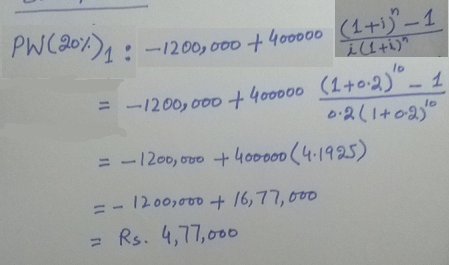 PW(20%)₁ : -1200,000 + 400000 \frac{(1+i)^n - 1}{i(1+i)^n}
= -1200,000 + 400000 \frac{(1+0.2)^{10} - 1}{0.2(1+0.2)^{10}}
= -1200,000 + 400000 (4.1925)
= - 1200,000 + 16,77,000
= Rs. 4,77,000